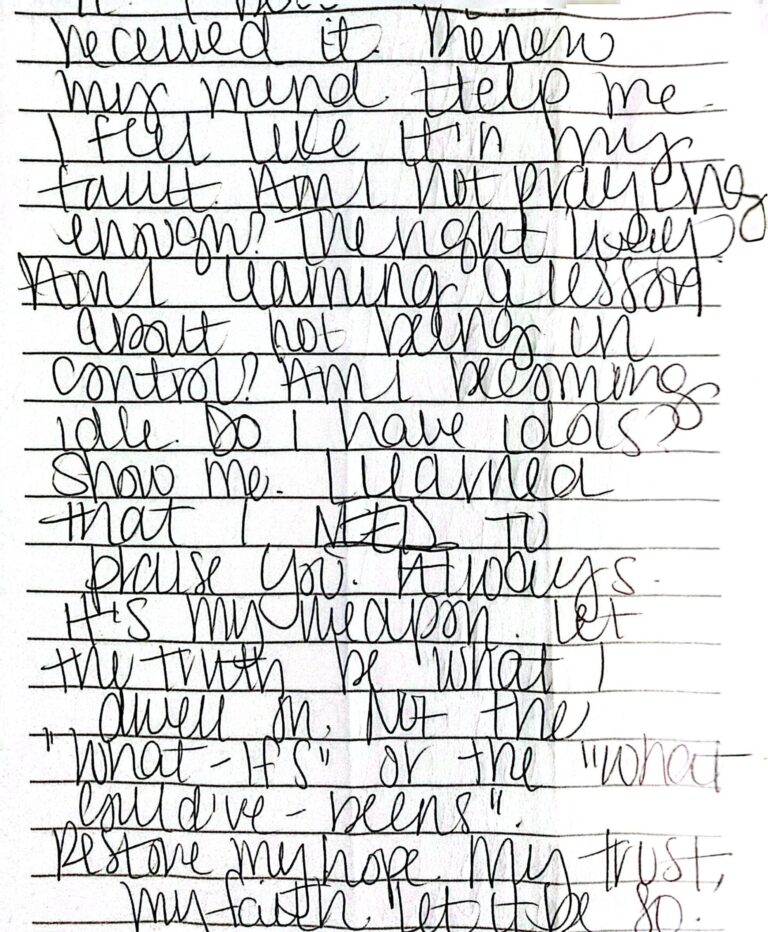 received it. Renew
my mind. Help me.
I feel like it's my
fault. Am I not praying
enough? The right way?
Am I learning a lesson
about not being in
control? Am I becoming
idle. Do I have idols?
Show me. I learned
that I NEED to
praise You. Always.
It's my weapon. Let
the truth be what I
dwell on. Not the
"what-if's" or the "what
could've-beens".
Restore my hope. My trust,
my faith. Let it be so.